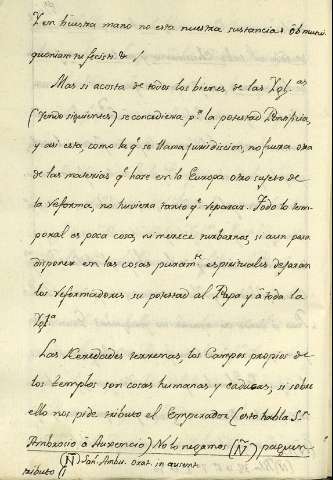 Y en nuestra mano no està nuestra sustancia: Obmutui
quoniam tu fecisti &. /
Mas si acosta de todos los bienes de las Ygl.as
(Tendo siguientes) se concediera p.r la potestad Pontificia,
y asi esta, como la q.e se llama jurisdiccion, no fuera otra
de las materias q.e hase en la Europa otro sujeto de
la reforma, no huviera tanto q.e reparar. Todo lo tem-
poral es poca cosa, ni merece turbarnos, si aun para
disponer en las cosas puram.te espirituales dejaran
los reformadores su potestad al Papa y â toda la
Ygl.a
Las Heredades terrenas, los Campos propios de
los templos son cosas humanas y caducas, si sobre
ello nos pide tributo el Emperador (esto habla S.n
Ambrosio â Auxencio) No lo negamos (Ñ) paguen
tributo (i
(Ñ) San Ambr. Orat. in auxent